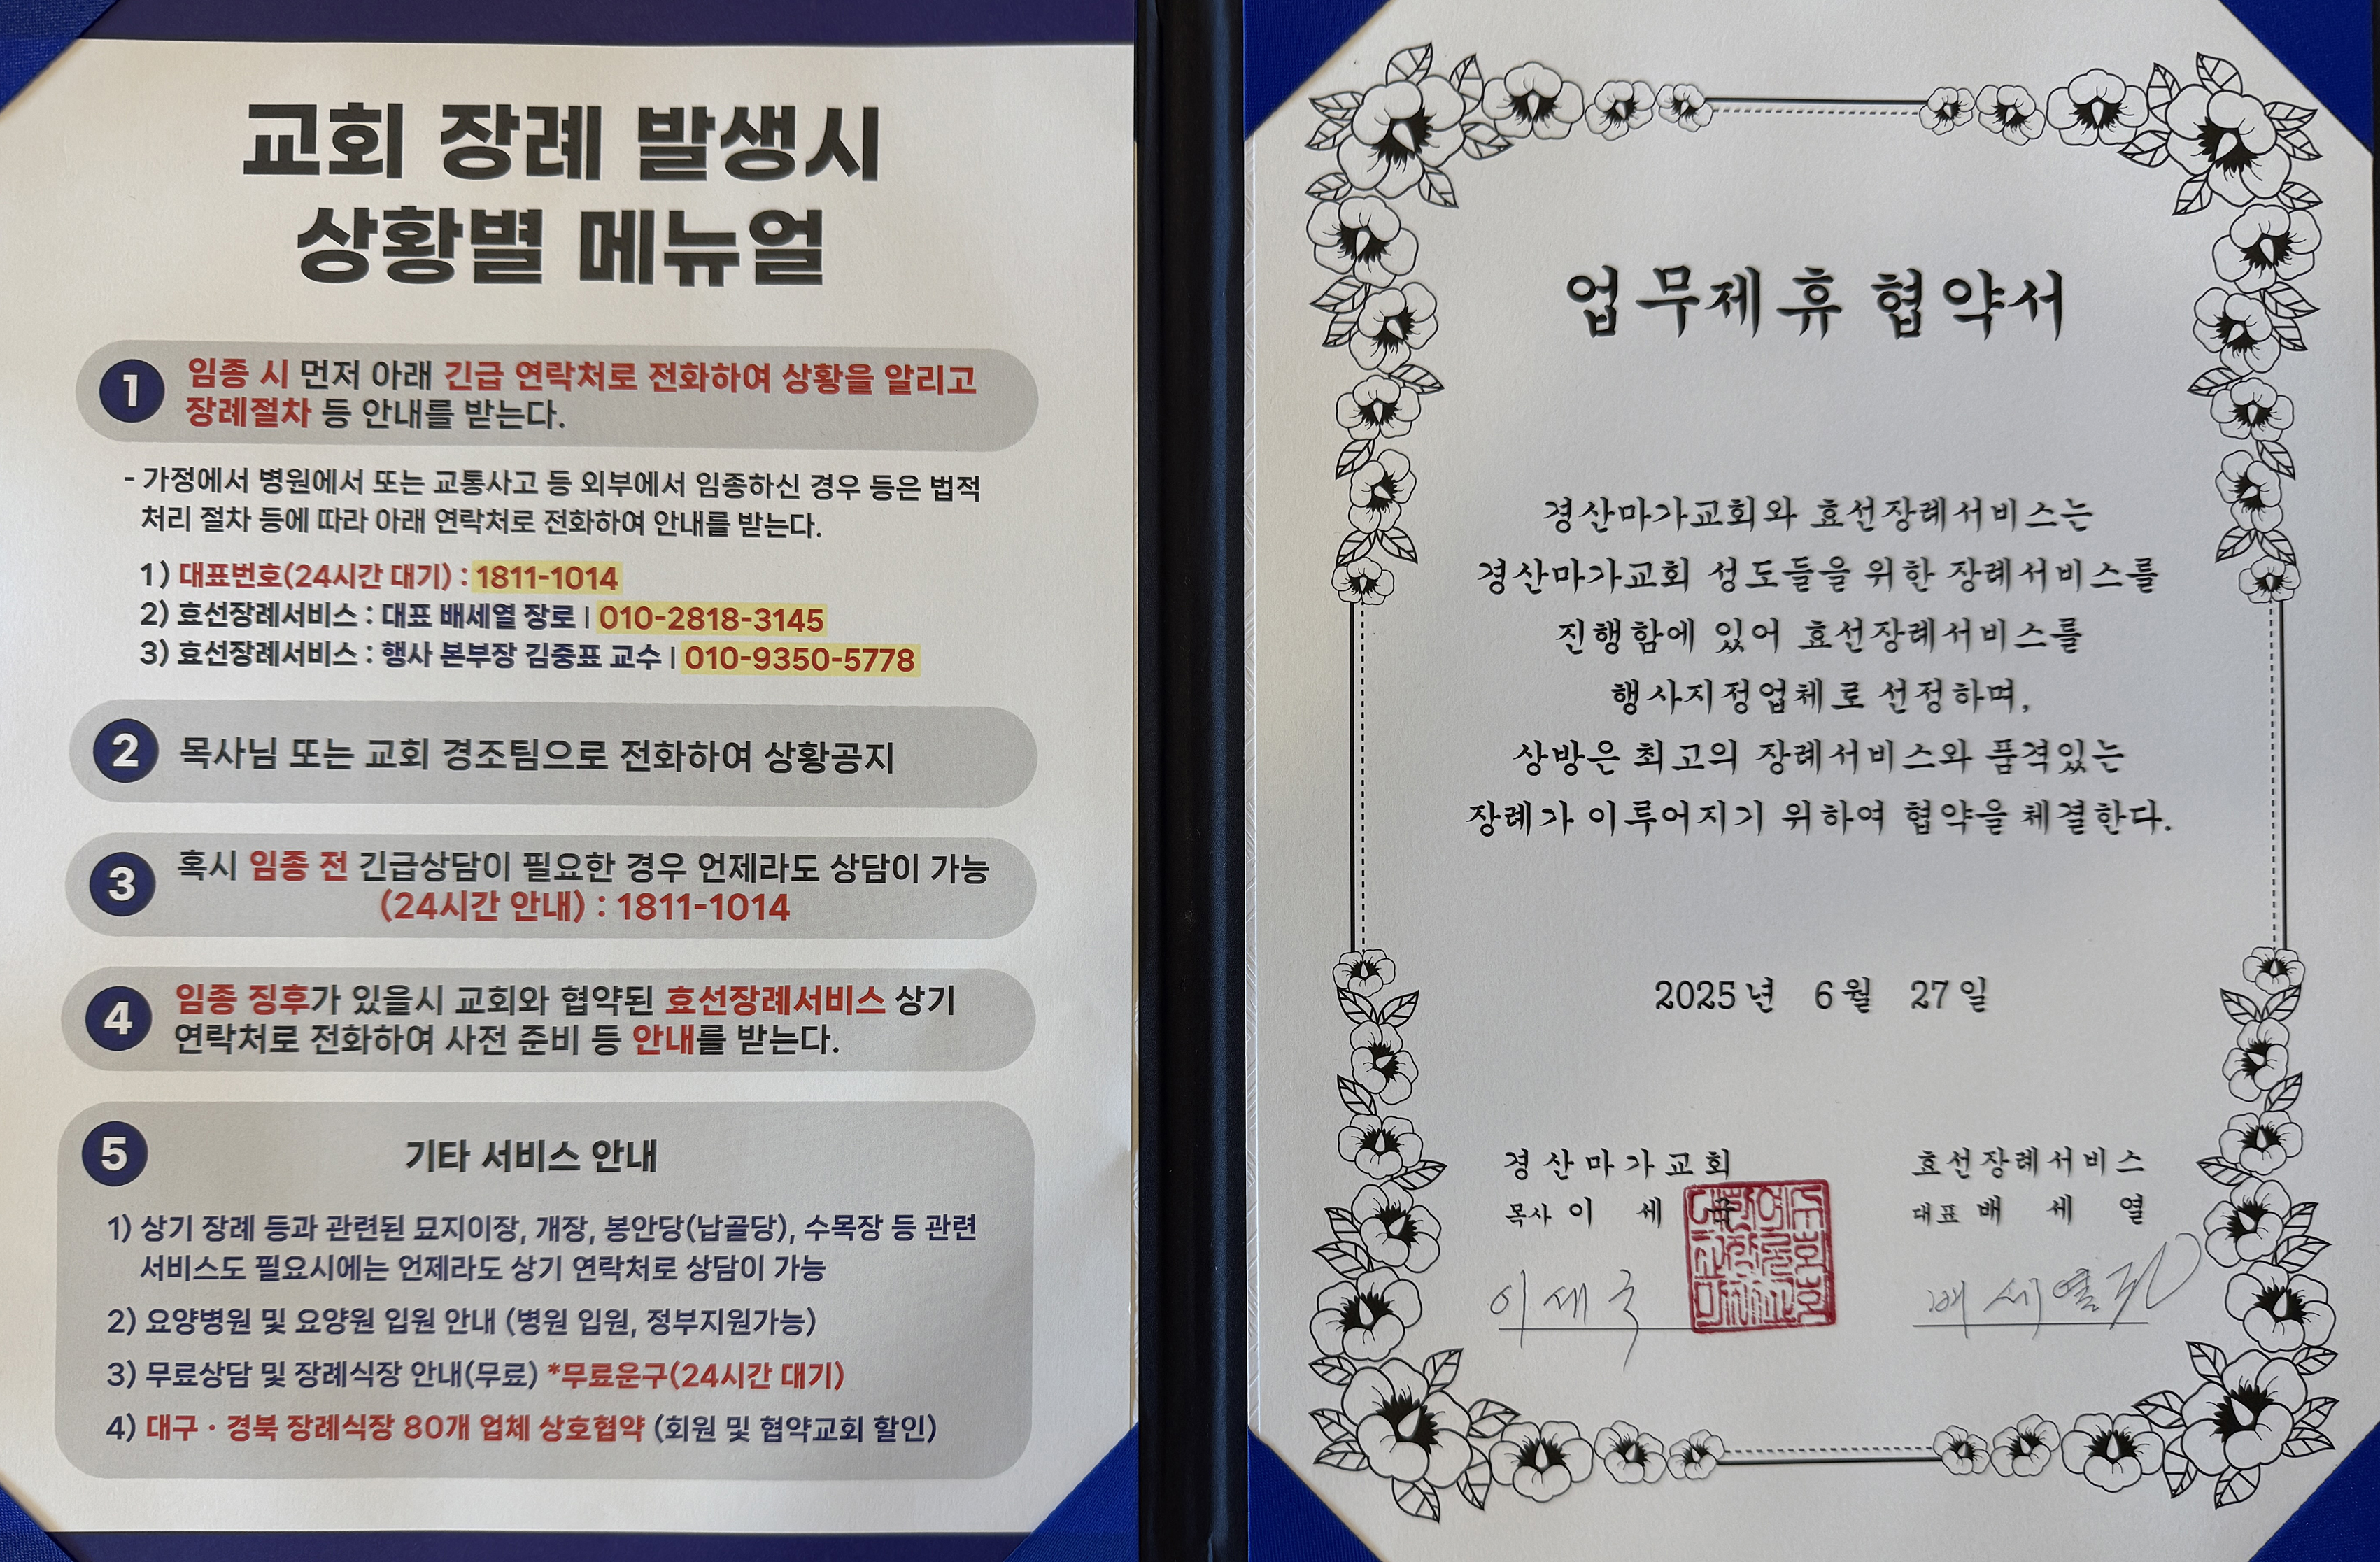 교회 장례 발생시
상황별 메뉴얼
1 임종 시 먼저 아래 긴급 연락처로 전화하여 상황을 알리고
장례절차 등 안내를 받는다.
- 가정에서 병원에서 또는 교통사고 등 외부에서 임종하신 경우 등은 법적
처리 절차 등에 따라 아래 연락처로 전화하여 안내를 받는다.
1) 대표번호(24시간 대기) : 1811-1014
2) 효선장례서비스 : 대표 배세열 장로 | 010-2818-3145
3) 효선장례서비스 : 행사 본부장 김중표 교수 | 010-9350-5778
2 목사님 또는 교회 경조팀으로 전화하여 상황공지
3 혹시 임종 전 긴급상담이 필요한 경우 언제라도 상담이 가능
(24시간 안내) : 1811-1014
4 임종 징후가 있을시 교회와 협약된 효선장례서비스 상기
연락처로 전화하여 사전 준비 등 안내를 받는다.
5 기타 서비스 안내
1) 상기 장례 등과 관련된 묘지이장, 개장, 봉안당(납골당), 수목장 등 관련
서비스도 필요시에는 언제라도 상기 연락처로 상담이 가능
2) 요양병원 및 요양원 입원 안내 (병원 입원, 정부지원가능)
3) 무료상담 및 장례식장 안내(무료) *무료운구(24시간 대기)
4) 대구 · 경북 장례식장 80개 업체 상호협약 (회원 및 협약교회 할인)
업무제휴 협약서
경산마가교회와 효선장례서비스는
경산마가교회 성도들을 위한 장례서비스를
진행함에 있어 효선장례서비스를
행사지정업체로 선정하며,
상방은 최고의 장례서비스와 품격있는
장례가 이루어지기 위하여 협약을 체결한다.
2025년 6월 27일
경산마가교회
목사 이 세 국
이세국
효선장례서비스
대표 배 세 열
배세열